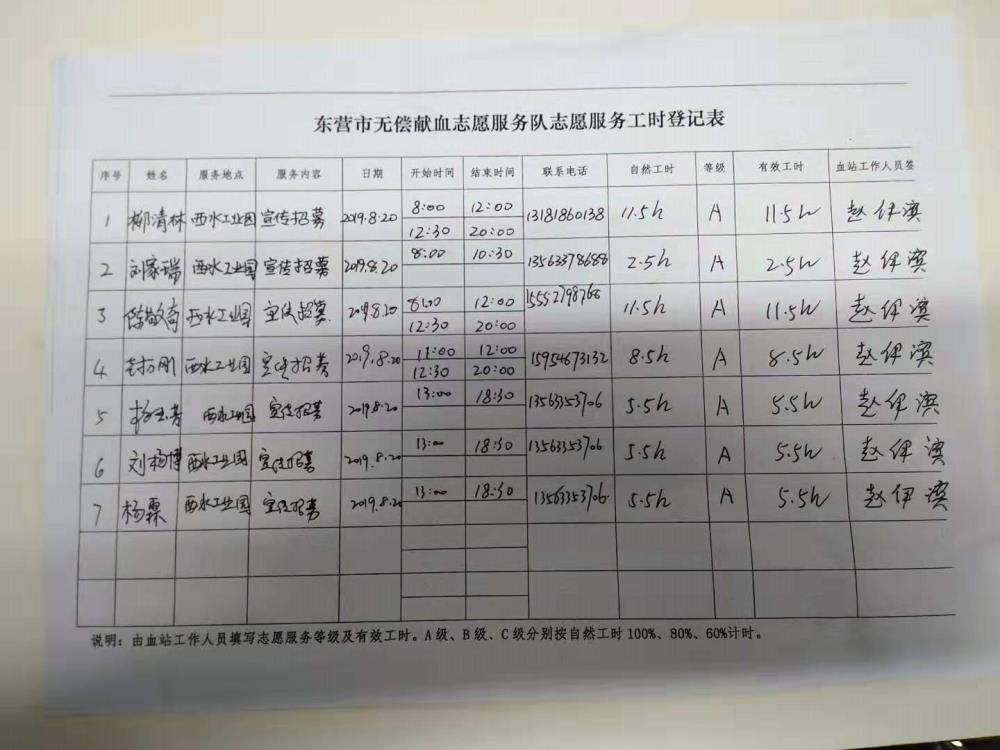 东营市无偿献血志愿服务队志愿服务工时登记表
序号 姓名 服务地点 服务内容 日期 开始时间 结束时间 联系电话 自然工时 等级 有效工时 血站工作人员签
1 柳清林 西水工业园 宣传招募 2019.8.20 8:00 12:00 13181860138 11.5h A 11.5h 赵伊滨
12:30 20:00
2 刘家瑞 西水工业园 宣传招募 2019.8.20 8:00 10:30 13563378688 2.5h A 2.5h 赵伊滨
3 陈敬奇 西水工业园 宣传招募 2019.8.20 8:00 12:00 15552798766 11.5h A 11.5h 赵伊滨
12:30 20:00
4 封刚 西水工业园 宣传招募 2019.8.20 11:00 12:00 15954673132 8.5h A 8.5h 赵伊滨
12:30 20:00
5 西水工业园 宣传招募 2019.8.20 13:00 18:30 13563353706 5.5h A 5.5h 赵伊滨
6 刘杨博 西水工业园 宣传招募 2019.8.20 13:00 18:30 13563353706 5.5h A 5.5h 赵伊滨
7 杨霖 西水工业园 宣传招募 2019.8.20 13:00 18:30 13563353706 5.5h A 5.5h 赵伊滨
说明：由血站工作人员填写志愿服务等级及有效工时。A级、B级、C级分别按自然工时100%、80%、60%计时。